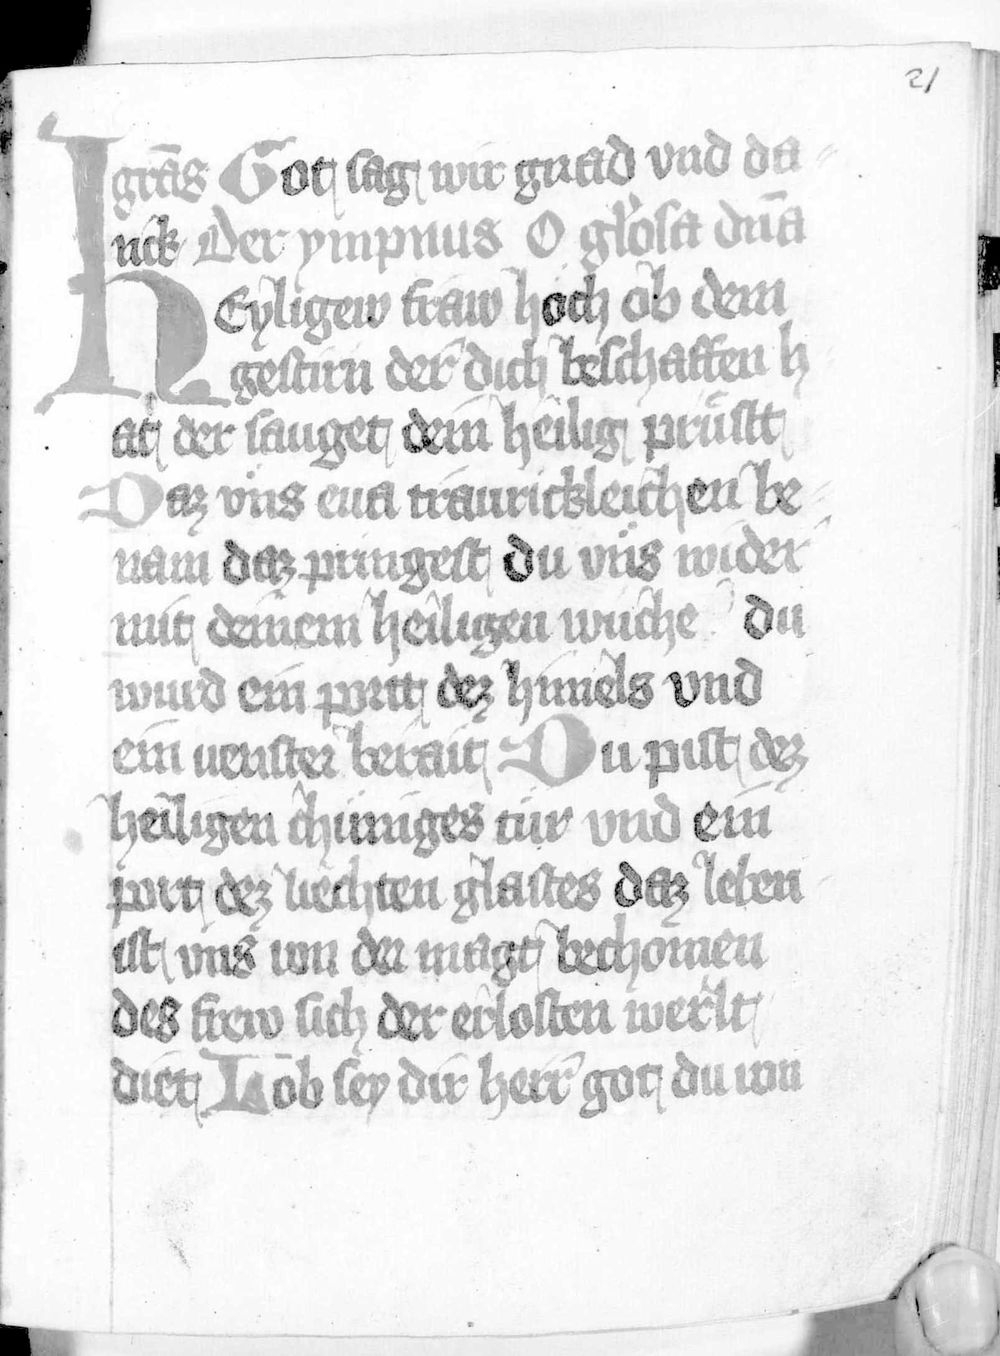 21
grās Got sag wir gnad vnd da-
nck Der ympnus O glosa dnā
HEyligew fraw hoch ob dem
gestirn der dich beschaffen h-
at der sauget dein heilig prüstt
Daz vns eua traurickleichen be-
nam daz pringest du vns wider
mit deinem heiligen wuche du
wurd ein portt dez himels vnd
ein uenster berait Du pist dez
heiligen chüniges tür vnd ein
port dez liechten glastes daz leben
ist vns uon der magt bechomen
des frew sich der erlosten werlt
diet Lob sey dir herr got du uon